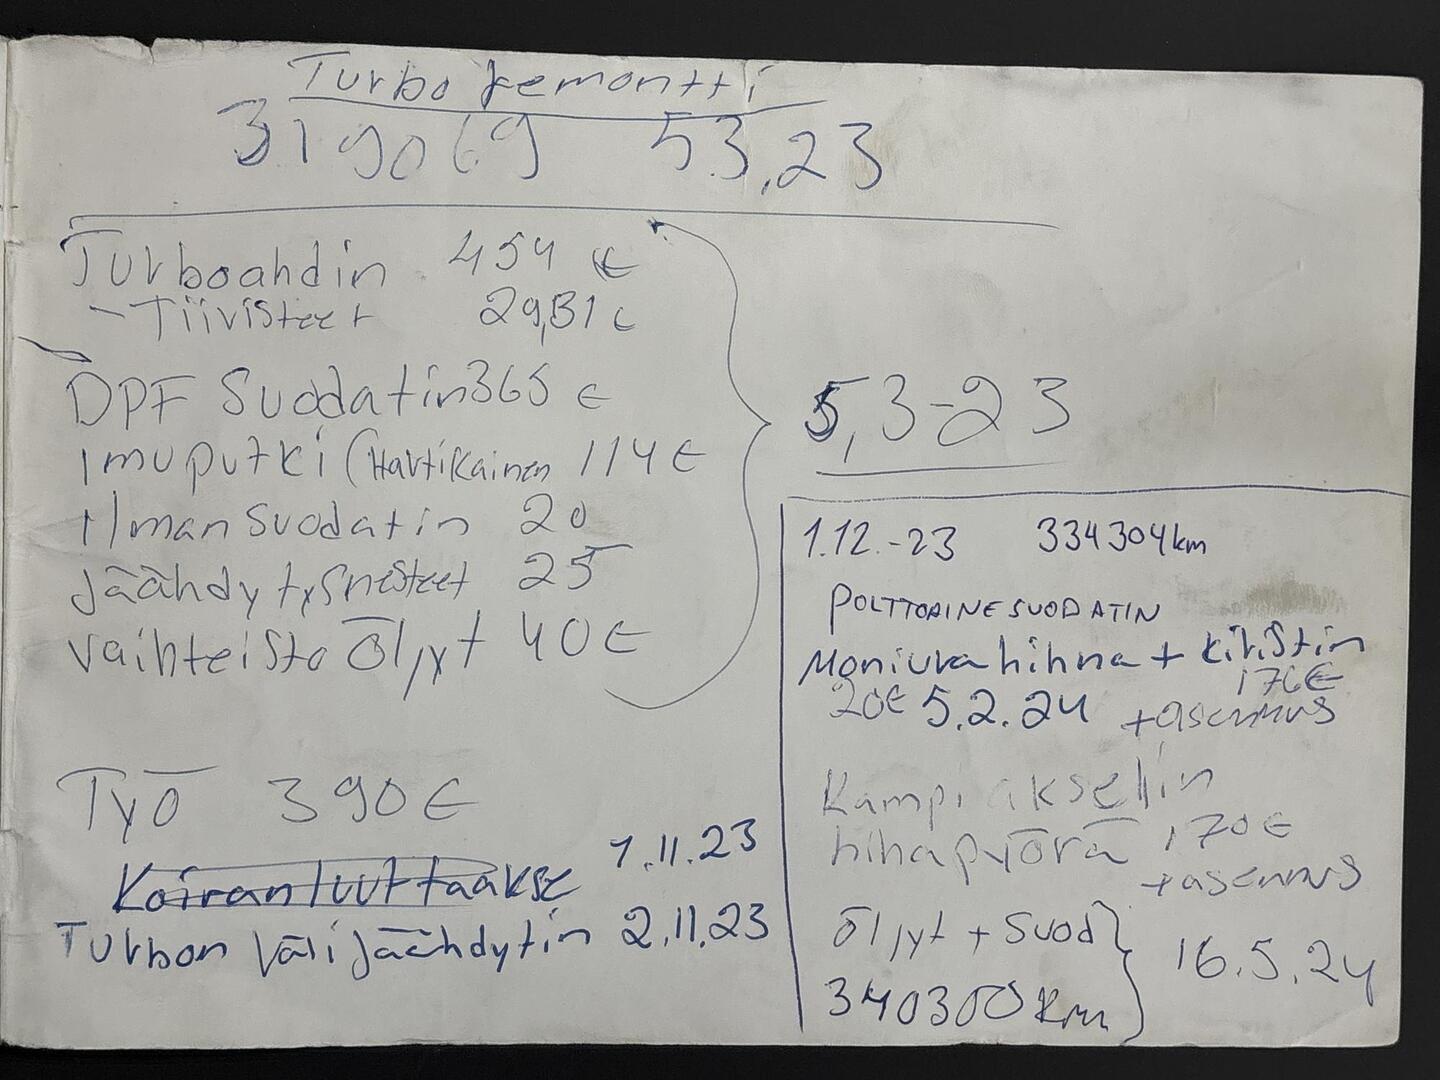 Turbo remontti
319069 5.3.23
Turboahdin 454 €
- Tiivisteet 29,31 €
DPF Suodatin 365 €
imuputki (Hartikainen 114 €
ilman suodatin 20
jäähdytysnesteet 25
vaihteisto öljyt 40 €
5,3-23
Työ 390 €
1.11.23
Turbon välijäähdytin 2.11.23
1.12.-23 334304 km
POLTTOAINESUODATIN
Moniurahihna + kiristin
20€ 5.2.24 176€
+ asennus
Kampiakselin
hihnapyörä 170 €
+ asennus
öljyt + suod
340300 km
16.5.24